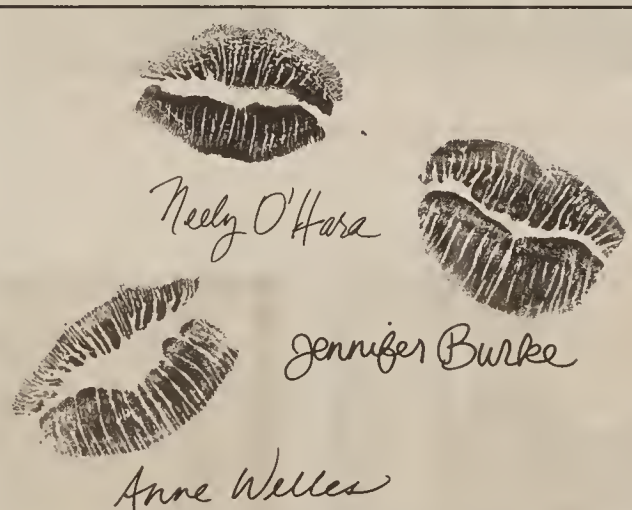 Neely O'Hara
Jennifer Burke
Anne Welles